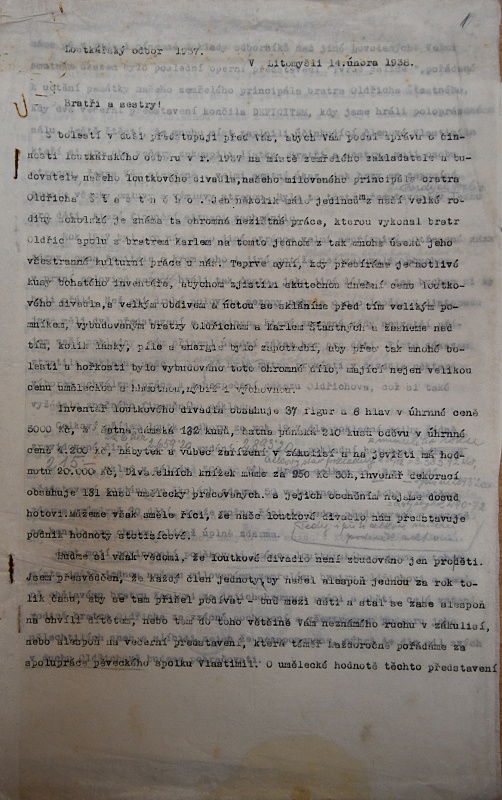 1
Loutkářský odbor 1937.
V Litomyšli 14.února 1938.
Bratři a sestry!
S bolestí v duši předstupuji před Vás, abych Vám podal zprávu o čin-
nosti loutkářského odboru v r. 1937 na místě zemřelého zakladatele a bu-
dovatele našeho loutkového divadla,našeho milovaného principála bratra
Oldřicha Šťastného. Jen několik málo jedinců z naší velké ro-
diny sokolské je známa ta ohromná nezištná práce, kterou vykonal bratr
Oldřich spolu s bratrem Karlem na tomto jednom z tak mnoha úseků jeho
všestranné kulturní práce u nás. Teprve nyní, kdy přebíráme jednotlivé
kusy bohatého inventáře, abychom zjistili skutečnou dnešní cenu loutko-
vého divadla,s velkým obdivem a úctou se skláníme před tím velikým po-
mníkem, vybudovaným bratry Oldřichem a Karlem Šťastných a žasneme nad
tím, kolik lásky, píle a energie bylo zapotřebí, aby přes tak mnohé bo-
lesti a hořkosti bylo vybudováno toto ohromné dílo, mající nejen velikou
cenu uměleckou a hmotnou,nýbrž i výchovnou.
Inventář loutkového divadla obsahuje 37 figur a 6 hlav v úhrnné ceně
5000 Kč, šatna dámská 132 kusů, šatna pánská 210 kusů oděvů v úhrnné
ceně 4.200 Kč, nábytek a vůbec zařízení v zákulisí a na jevišti má hod-
notu 20.000 Kč, Divadelních knížek máme za 950 Kč 30h,inventář dekorací
obsahuje 131 kusů umělecky pracovaných. S jejich oceněním nejsme dosud
hotovi.Můžeme však směle říci, že naše loutkové divadlo nám představuje
podnik hodnoty stotisícové.
Buďme si však vědomi, že loutkové divadlo není zbudováno jen pro děti.
Jsem přesvědčen, že každý člen jednoty by našel alespoň jednou za rok to-
lik času, aby se tam přišel podívat - buď mezi děti a stal se zase alespoň
na chvíli dítětem, nebo tam do toho většině Vám neznámého ruchu v zákulisí,
nebo alespoň na večerní představení, která téměř každoročně pořádáme za
spolupráce pěveckého spolku Vlastimil. O umělecké hodnotě těchto představení